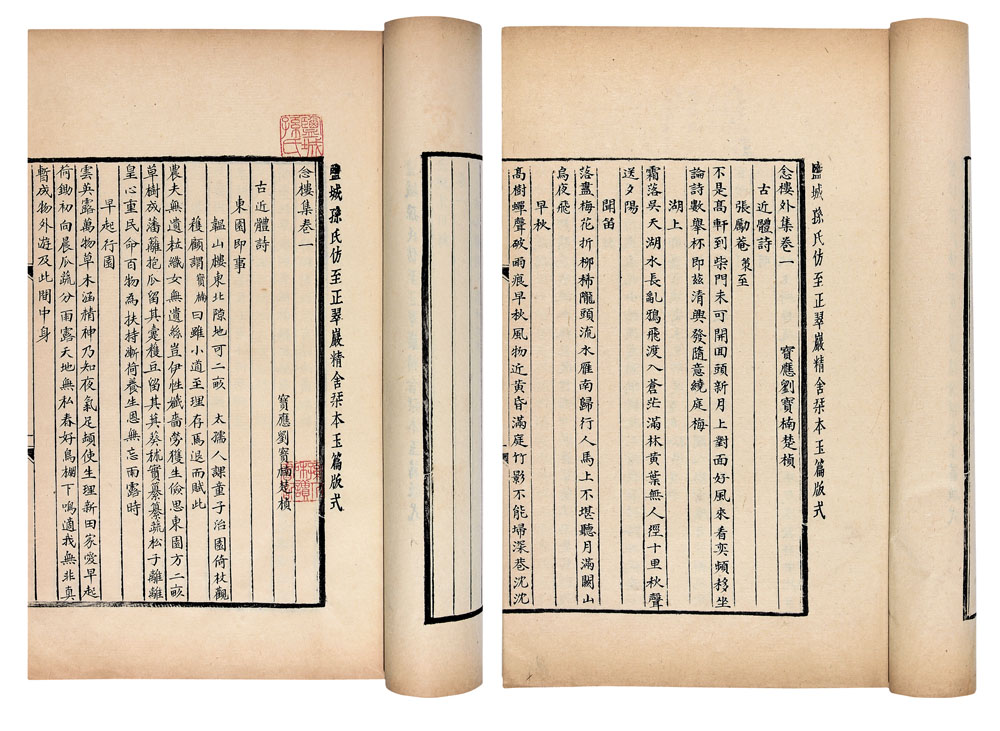 鹽城孫氏
鹽城孫氏仿至正翠巖精舍栞本玉篇版式
念樓集卷一
寶應劉寶楠楚楨
古近體詩
東園即事
韞山樓東北隙地可二畝 太孺人課童子治園倚杖觀
穫顧謂寶楠曰雖小道至理存焉退而賦此
農夫無遺粒織女無遺絲豈伊性纖嗇勞獲生儉思東園方二畝
草樹成藩蘺抱瓜留其㚇穫豆留其萁葵秫實纂纂蔬松子離離
皇心重民命百物為扶持漸荷養生恩無忘雨露時
早起行園
雲英露萬物草木涵精神乃知夜氣足頓使生理新田家愛早起
荷鋤初向晨瓜蔬分雨露天地無私春好鳥棚下鳴適我無非真
暫成物外遊及此閒中身
鹽城孫氏仿至正翠巖精舍栞本玉篇版式
念樓外集卷一
寶應劉寶楠楚楨
古近體詩
張勵菴 至
不是高軒到柴門未可開回頭新月上對面好風來看奕頻移坐
論詩數舉杯即茲清興發隨意繞庭梅
湖上
霜落吳天湖水長亂鴉飛渡入蒼茫滿林黃葉無人徑十里秋聲
送夕陽
聞笛
落盡梅花折柳稀隴頭流水雁南歸行人馬上不堪聽月滿關山
烏夜飛
早秋
高樹蟬聲破雨痕早秋風物近黃昏滿庭竹影不能埽深巷沈沈